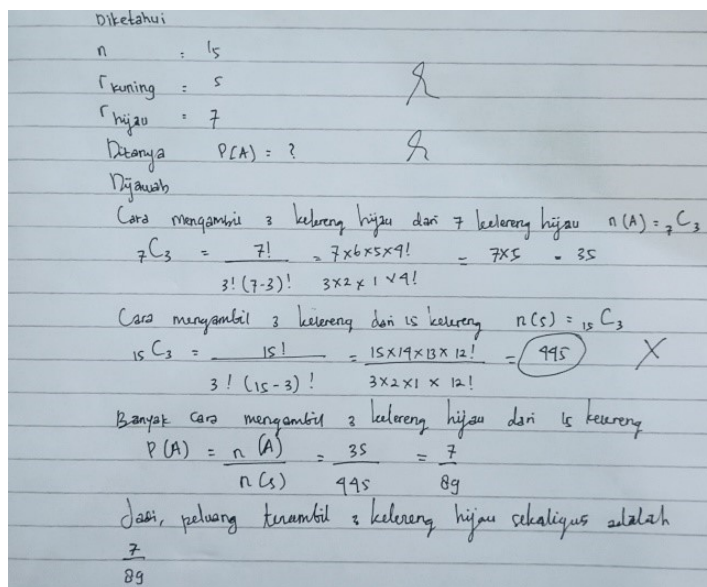 Diketahui
n : 15
r kuning = 5
r hijau = 7
Ditanya P(A) = ?
Dijawab
Cara mengambil 3 kelereng hijau dari 7 kelereng hijau n(A) = ₇C₃
₇C₃ = 7! / 3! (7-3)! = 7×6×5×4! / 3×2×1×4! = 7×5 = 35
Cara mengambil 3 kelereng dari 15 kelereng n(s) = ₁₅C₃
₁₅C₃ = 15! / 3! (15-3)! = 15×14×13×12! / 3×2×1×12! = 445 X
Banyak cara mengambil 3 kelereng hijau dari 15 kelereng
P(A) = n(A) / n(s) = 35 / 445 = 7 / 89
Jadi, peluang terambil 3 kelereng hijau sekaligus adalah
7 / 89